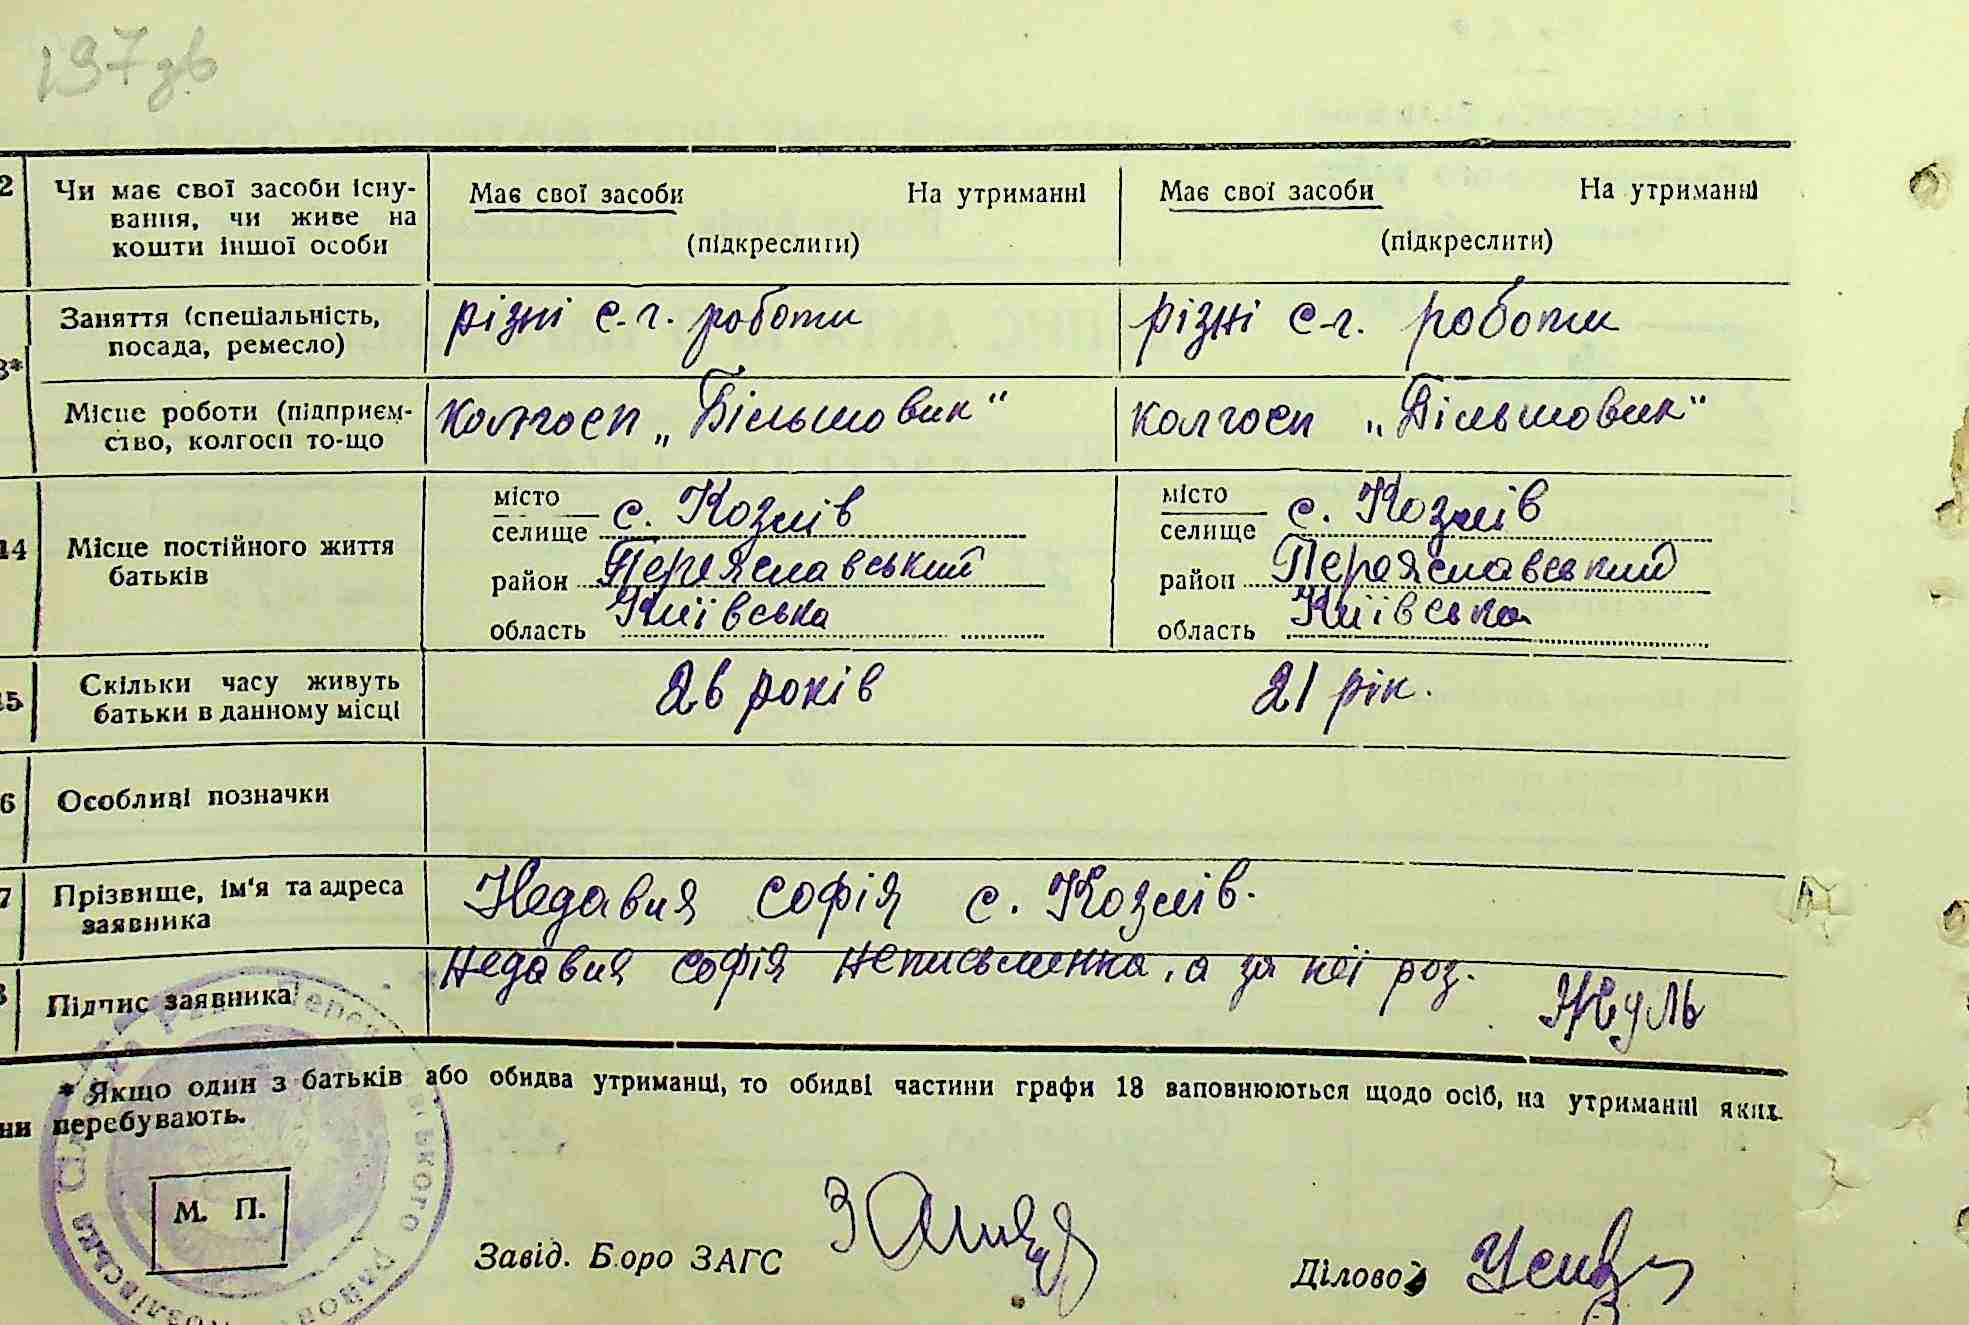 197зв
2 Чи має свої засоби існу- Має свої засоби На утриманні Має свої засоби На утриманні
вання, чи живе на
кошти іншої особи (підкреслити) (підкреслити)
Заняття (спеціальність, різні с-г. роботи різні с-г. роботи
посада, ремесло)
3*
Місце роботи (підприєм- колгосп „Більшовик" колгосп „Більшовик"
ство, колгосп то-що
місто с. Козлів місто с. Козлів
селище селище
14 Місце постійного життя район Переяславський район Переяславський
батьків область Київська область Київська
15 Скільки часу живуть 26 років 21 рік.
батьки в данному місці
6 Особливі позначки
7 Прізвище, ім'я та адреса Недавня Софія с. Козлів.
заявника
8 Підпис заявника Недавня Софія неписьменна, а за неї роз. Жуль
* Якщо один з батьків або обидва утриманці, то обидві частини графи 13 заповнюються щодо осіб, на утриманні яких
ни перебувають.
М. П.
Завід. Бюро ЗАГС
Діловод